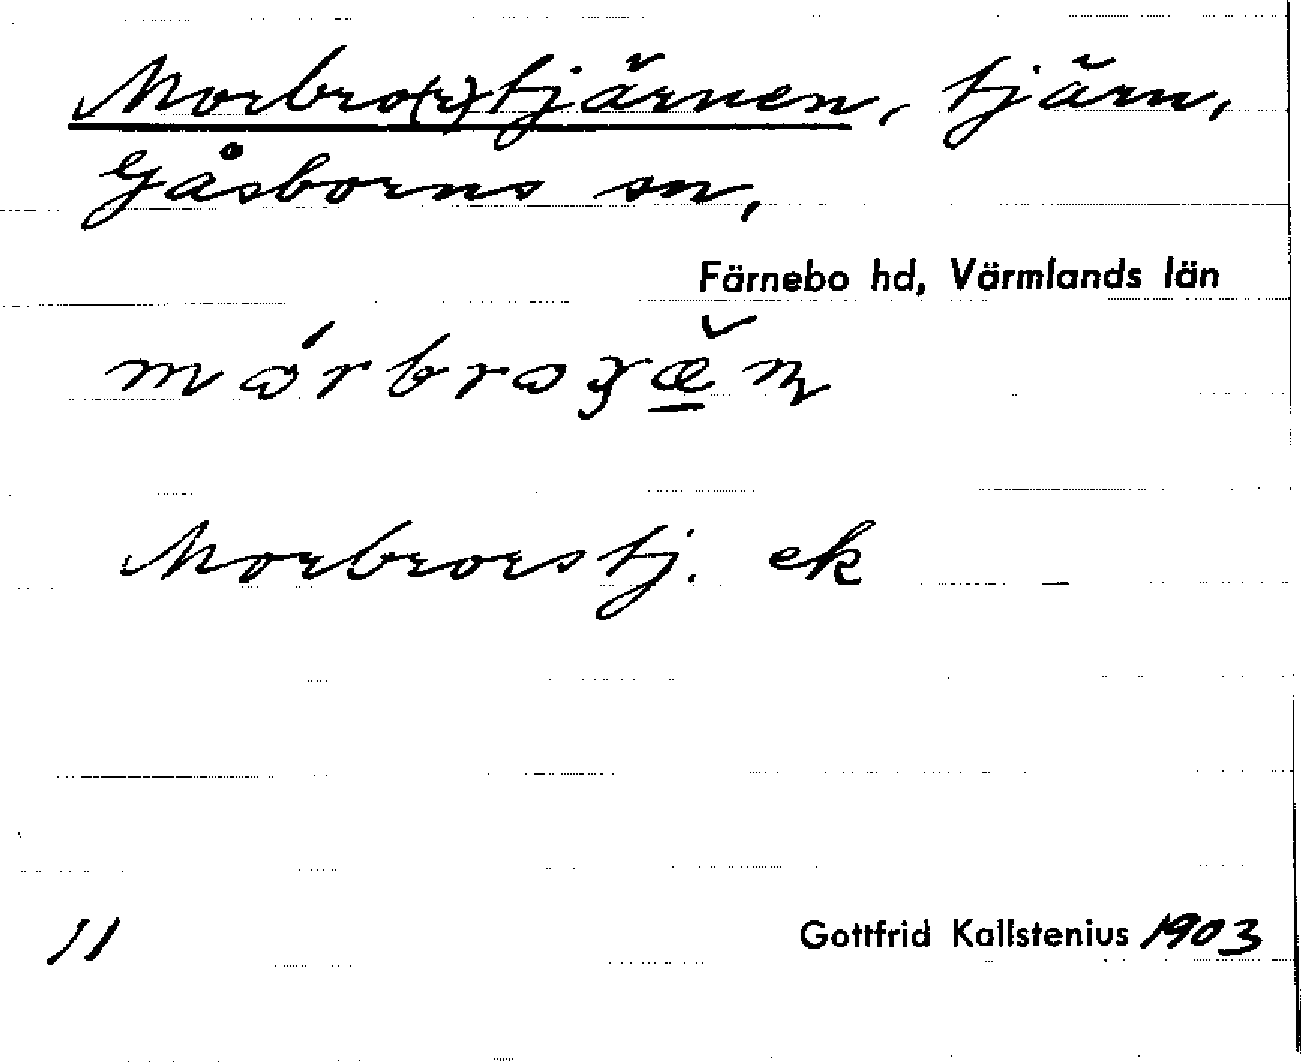 Morbro(r)tjärnen, tjärn,
Gåsborns sn,
Färnebo hd, Värmlands län
Morbrorstj. ek
11
Gottfrid Kallstenius 1903